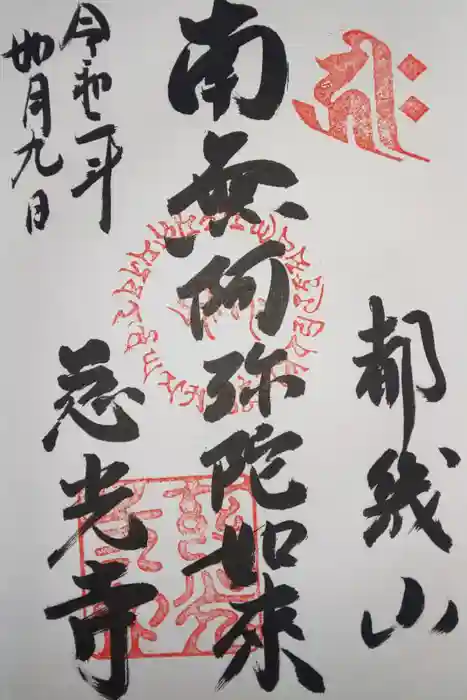 都幾山
南無阿弥陀如来
慈光寺
令和二年
如月九日